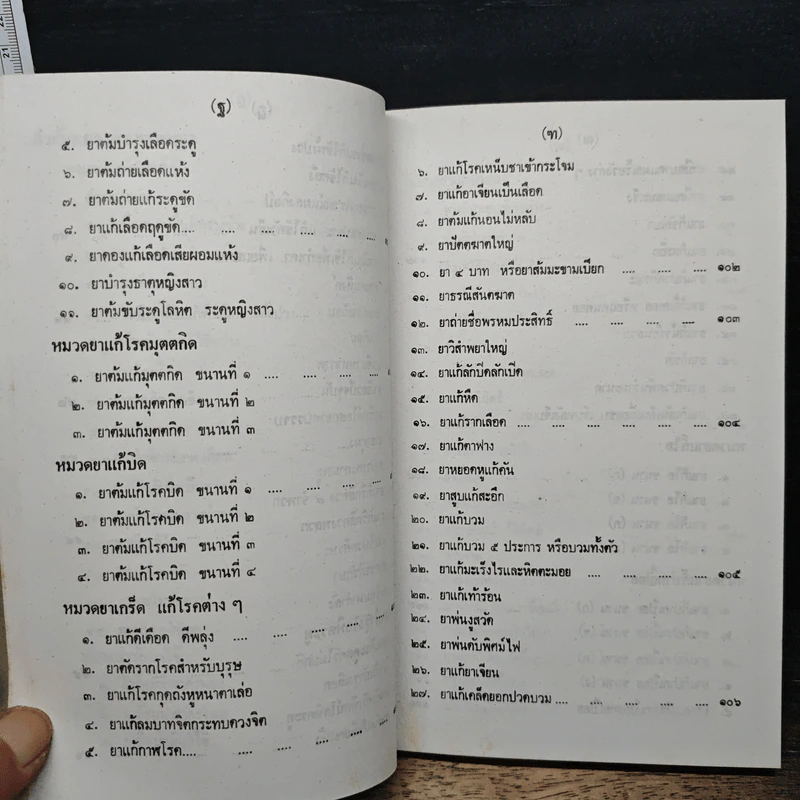 (ฐ)
๕. ยาต้มบำรุงเลือดระดู
๖. ยาต้มถ่ายเลือดแห้ง
๗. ยาต้มถ่ายแก้ระดูขัด
๘. ยาแก้เลือดฤดูขัด.... .... .... .... ....
๙. ยาดองแก้เลือดเสียผอมแห้ง
๑๐. ยาบำรุงธาตุหญิงสาว
๑๑. ยาต้มขับระดูโลหิต ระดูหญิงสาว
หมวดยาแก้โรคมุตตกิด
๑. ยาต้มแก้มุตตกิด ขนานที่ ๑ .... .... .... ....
๒. ยาต้มแก้มุตตกิด ขนานที่ ๒
๓. ยาต้มแก้มุตตกิด ขนานที่ ๓
หมวดยาแก้บิด
๑. ยาต้มแก้โรคบิด ขนานที่ ๑ .... .... .... ....
๒. ยาต้มแก้โรคบิด ขนานที่ ๒
๓. ยาต้มแก้โรคบิด ขนานที่ ๓
๔. ยาต้มแก้โรคบิด ขนานที่ ๔
หมวดยาเกร็ด แก้โรคต่าง ๆ
๑. ยาแก้ดีเดือด ดีพลุ่ง .... .... .... ....
๒. ยาตัดรากโรคสำหรับบุรุษ
๓. ยาแก้โรคกุดถังหูหนาตาเล่อ
๔. ยาแก้ลมบาทจิตกระทบดวงจิต
๕. ยาแก้กาฬโรค.... .... .... .... ....
(ฑ)
๖. ยาแก้โรคเหน็บชาเข้ากระโจม
๗. ยาแก้อาเจียนเป็นเลือด
๘. ยาต้มแก้นอนไม่หลับ
๙. ยาปัตตฆาตใหญ่
๑๐. ยา ๔ บาท หรือยาส้มมะขามเปียก .... .... .... ๑๐๒
๑๑. ยาธรณีสันตฆาต
๑๒. ยาถ่ายชื่อพรหมประสิทธิ์ .... .... .... .... ๑๐๓
๑๓. ยาวิสำพยาใหญ่
๑๔. ยาแก้ลักปิดลักเปิด
๑๕. ยาแก้หืด
๑๖. ยาแก้รากเลือด .... .... .... .... .... ๑๐๔
๑๗. ยาแก้ตาฟาง
๑๘. ยาหยอดหูแก้คัน
๑๙. ยาสูบแก้สะอึก
๒๐. ยาแก้บวม
๒๑. ยาแก้บวม ๕ ประการ หรือบวมทั้งตัว
๒๒. ยาแก้มะเร็งไรและหิตตะมอย .... .... .... .... ๑๐๕
๒๓. ยาแก้เท้าร้อน
๒๔. ยาพ่นงูสวัด
๒๕. ยาพ่นดับพิศม์ไฟ
๒๖. ยาแก้ยาเจียน
๒๗. ยาแก้เคล็ดยอกปวดบวม .... .... .... .... ๑๐๖